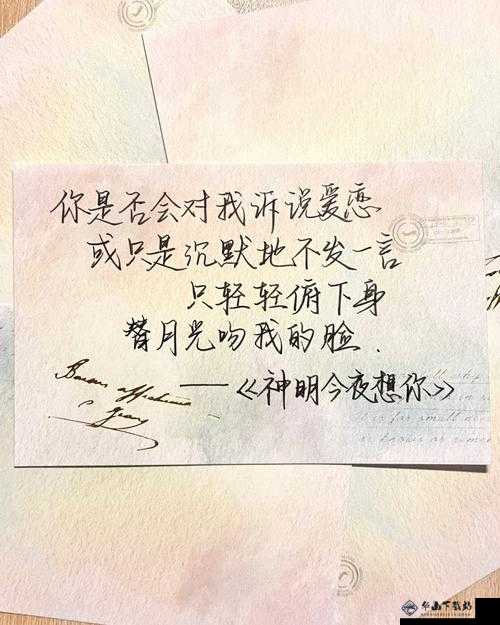 你是否会对我诉说爱恋
或只是沉默地不发一言
只轻轻俯下身
替月光吻我的脸.
——《神明今夜想你》
华山下载站